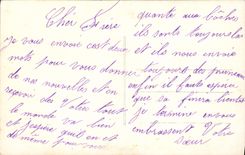 Cher Frère
je vous envoie cest deux
mots pour vous donner
de nos nouvelles et en
recevoir des Votres tout
le monde va bien
et j'espère quil en est
de même pour vous
quante aux boches
ils sont toujours la
et ils nous envoie
toujours des pruneaux
enfin il faut esperer
que sa finira bientot
je termine en vous
embrassent Votre
Sœur